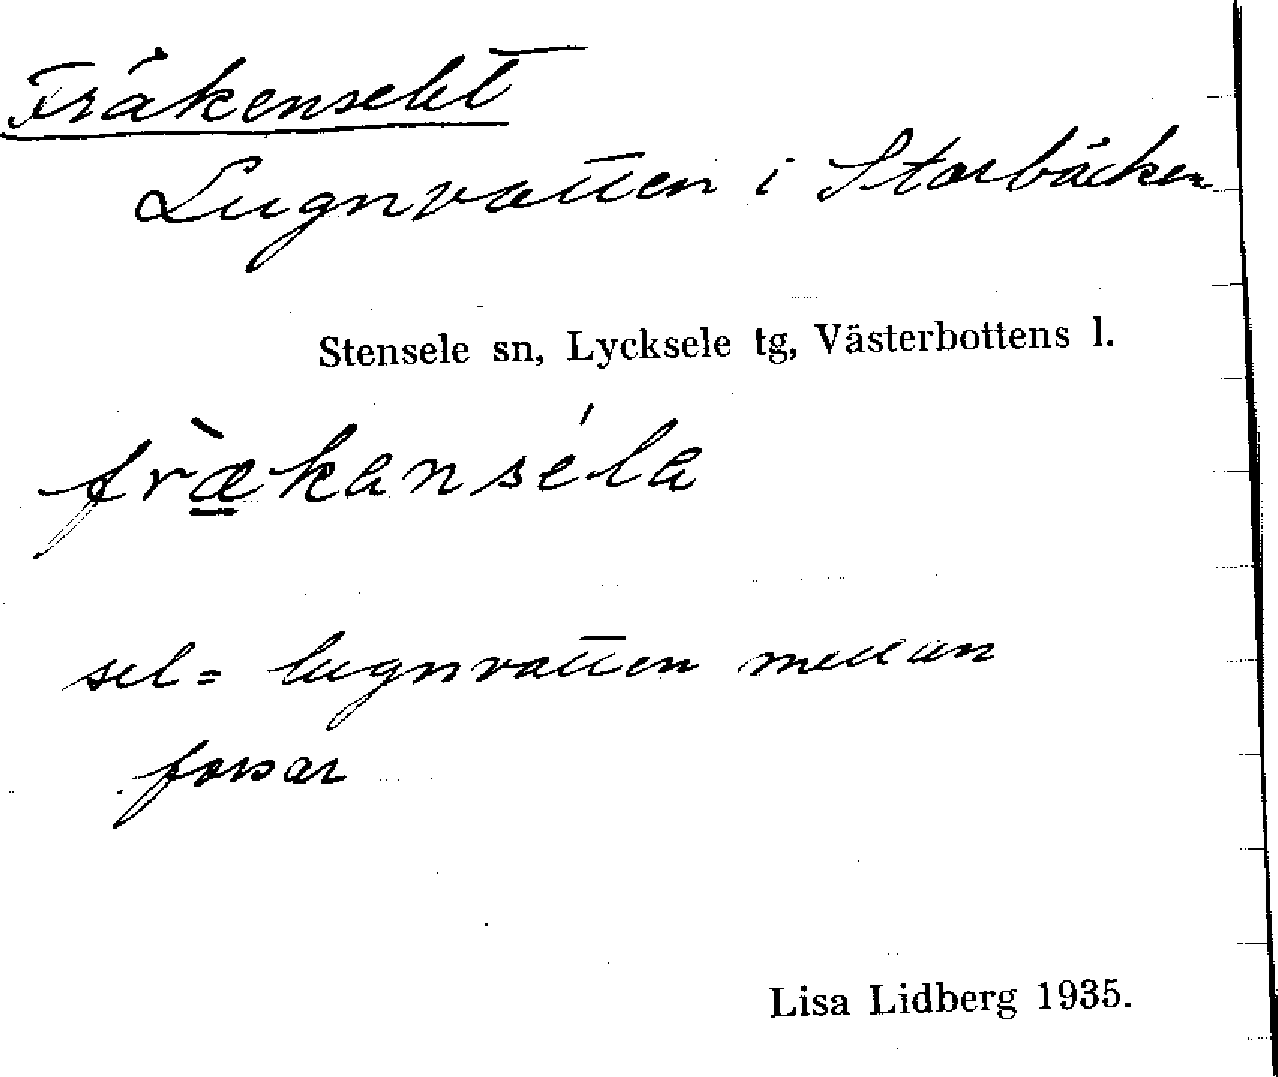 Fräkenselet
Lugnvatten i Storbäcken
Stensele sn, Lycksele tg, Västerbottens l.
fræ̀kanséla
sel = lugnvatten mellan
forsar
Lisa Lidberg 1935.